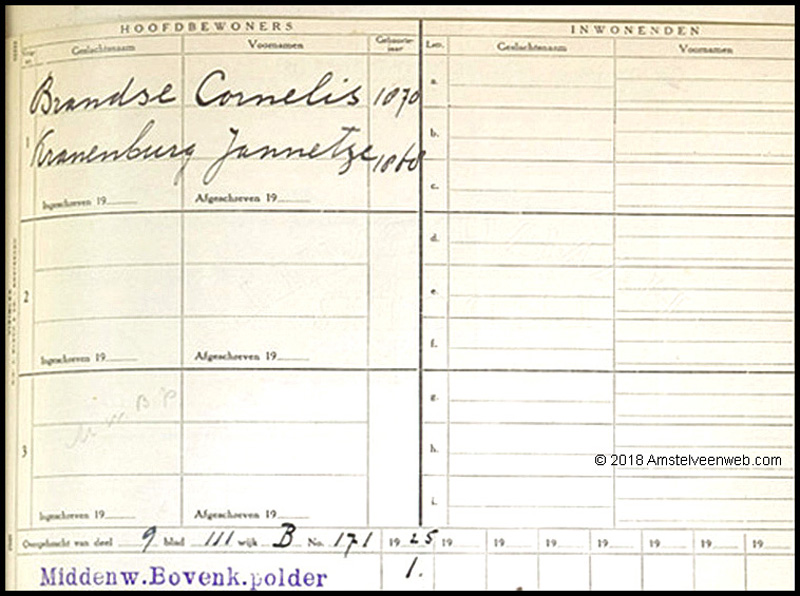 HOOFDBEWONERS INWONENDEN
Geslachtsnaam Voornamen Geboorte-jaar Lett. Geslachtsnaam Voornamen
Brandse Cornelis 1870 a.
1 b.
Kranenburg Jannetje 1868
c.
Ingeschreven 19 Afgeschreven 19
d.
2 e.
f.
Ingeschreven 19 Afgeschreven 19
g.
3 h.
© 2018 Amstelveenweb.com
i.
Ingeschreven 19 Afgeschreven 19
Overgebracht van deel 9 blad 111 wijk B No. 171 19 25 19 19 19 19 19 19 19
Middenw.Bovenk.polder 1.